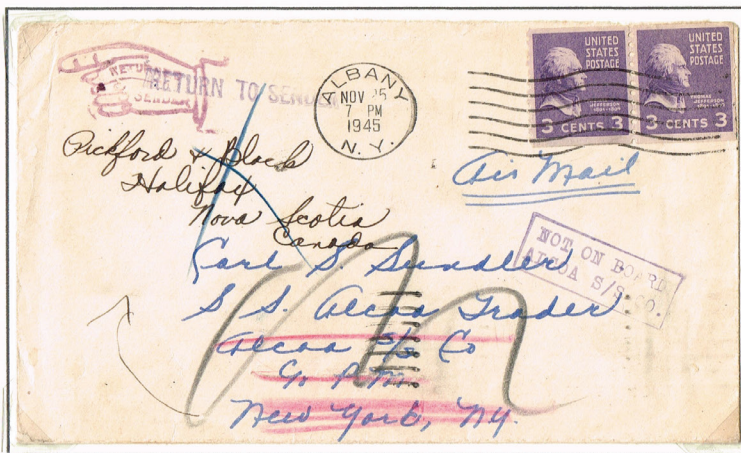 RETURN TO SENDER
RETURN TO SENDER
ALBANY
NOV 25
7 PM
1945
N.Y.
UNITED
STATES
POSTAGE
THOMAS
JEFFERSON
3 CENTS 3
UNITED
STATES
POSTAGE
THOMAS
JEFFERSON
3 CENTS 3
Air Mail
Pickford & Black
Halifax
Nova Scotia
Canada
NOT ON BOARD
ALCOA S/S CO.
Carl S. Sundler
S S. Alcoa Trader
Alcoa S/S Co
G. P.M.
New York, NY.